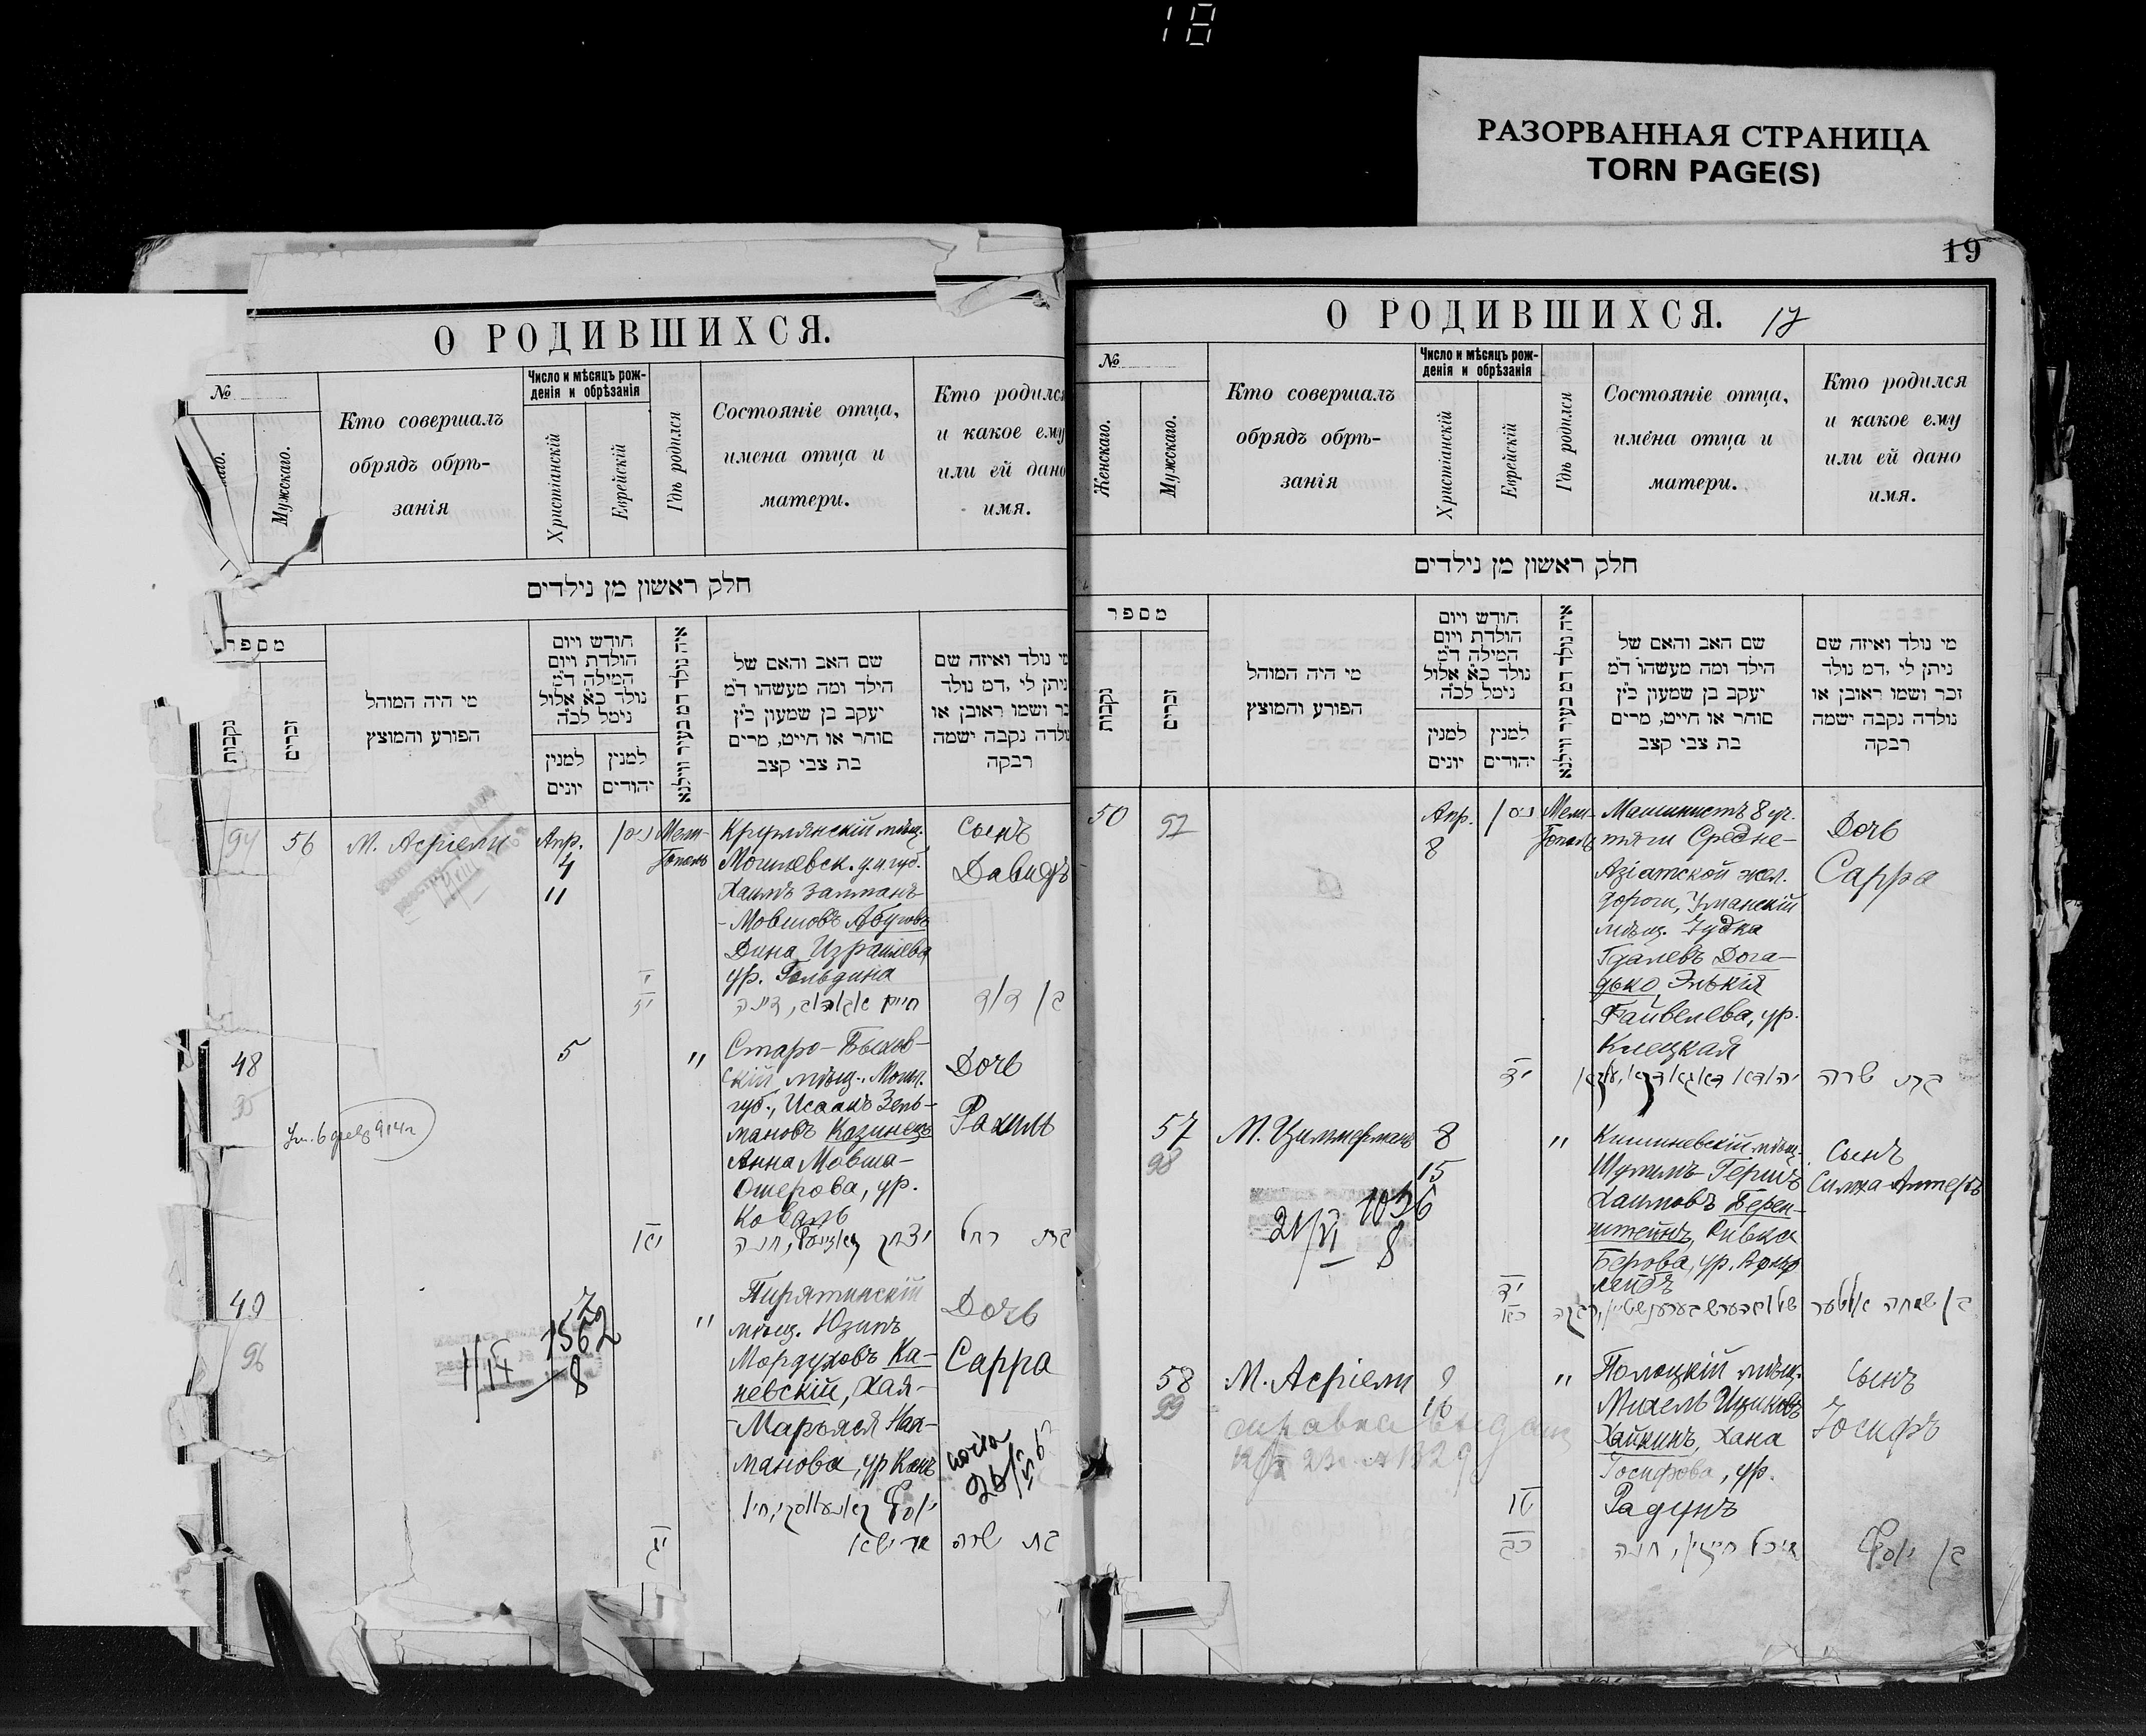 18
РАЗОРВАННАЯ СТРАНИЦА
TORN PAGE(S)
О РОДИВШИХСЯ.
№
Мужскаго.
Кто совершалъ
обрядъ обрѣ-
занія
Число и мѣсяцъ рож-
денія и обрѣзанія
Христіанскій
Еврейскій
Гдѣ родился
Состояніе отца,
имена отца и
матери.
Кто родился
и какое ему
или ей дано
имя.
חלק ראשון מן נילדים
מספר
נקבות
זכרים
מי היה המוהל
הפורע והמוצץ
חודש ויום
הולדת ויום
המילה ד"מ
נולד כ"א אלול
נימל לכ"ה
למנין
יונים
למנין
יהודים
איה נולד דמ בעיר ווילנא
שם האב והאם של
הילד ומה מעשהו ד"מ
יעקב בן שמעון כ"ץ
סוחר או חייט, מרים
בת צבי קצב
מי נולד ואיזה שם
ניתן לי ,דמ נולד
זכר ושמו ראובן או
נולדה נקבה ישמה
רבקה
94
56
М. Асріели
Апр.
4
11
ניסן
Мели-
тополь
Круглянскій мѣщ.
Могилевск. у. и губ.
Хаимъ Залманъ-
-Мовшовъ Абуговъ
Дина Израилева
ур. Гольдина
Сынъ
Давидъ
בן דוד
48
95
5
"
Старо-Быхов-
скій мѣщ., Могил.
губ., Исаакъ Зель-
мановъ Казинецъ
Анна Мовша-
Ошерова, ур.
Коваль
Дочь
Рахиль
בת רחל
49
96
7
1562
8
"
Пирятинскій
мѣщ. Юзипъ
Мордуховъ Ка-
невскій, Хая-
Марьяся Нах-
манова, ур Канъ
Дочь
Сарра
בת שרה
יג
19
О РОДИВШИХСЯ. 17
№
Женскаго.
Мужскаго.
Кто совершалъ
обрядъ обрѣ-
занія
Число и мѣсяцъ рож-
денія и обрѣзанія
Христіанскій
Еврейскій
Гдѣ родился
Состояніе отца,
имена отца и
матери.
Кто родился
и какое ему
или ей дано
имя.
חלק ראשון מן נילדים
מספר
נקבות
זכרים
מי היה המוהל
הפורע והמוצץ
חודש ויום
הולדת ויום
המילה ד"מ
נולד כ"א אלול
נימל לכ"ה
למנין
יונים
למנין
יהודים
איה נולד דמ בעיר ווילנא
שם האב והאם של
הילד ומה מעשהו ד"מ
יעקב בן שמעון כ"ץ
סוחר או חייט, מרים
בת צבי קצב
מי נולד ואיזה שם
ניתן לי ,דמ נולד
זכר ושמו ראובן או
נולדה נקבה ישמה
רבקה
50
97
Апр.
8
ניסן
Мели-
тополь
Машинистъ 8 уч.
тяги Средне-
Азіатской жел.
дороги, Уманскій
мѣщ. Іудка
Гдалевъ Дога-
дько,
Файвелева, ур.
Клецкая
Дочь
Сарра
יד
בת שרה
57
98
М. Циммерманъ
8
15
1056
21/VI 8
"
Кишиневскій мѣщ.
Шулимъ-Гершъ
Хаимовъ Берен-
штейнъ, Ривка
Берова, ур.
Сынъ
Симха-Алтеръ
יד
כא
בן שמחה אלטער
58
99
М. Асріели
9
16
"
Полоцкій мѣщ.
Михель Ициковъ
Хайкинъ, Хана
Іосифова, ур.
Радунъ
Сынъ
Іосифъ
טו
כב
מיכל חייקין, חנה
בן יוסף